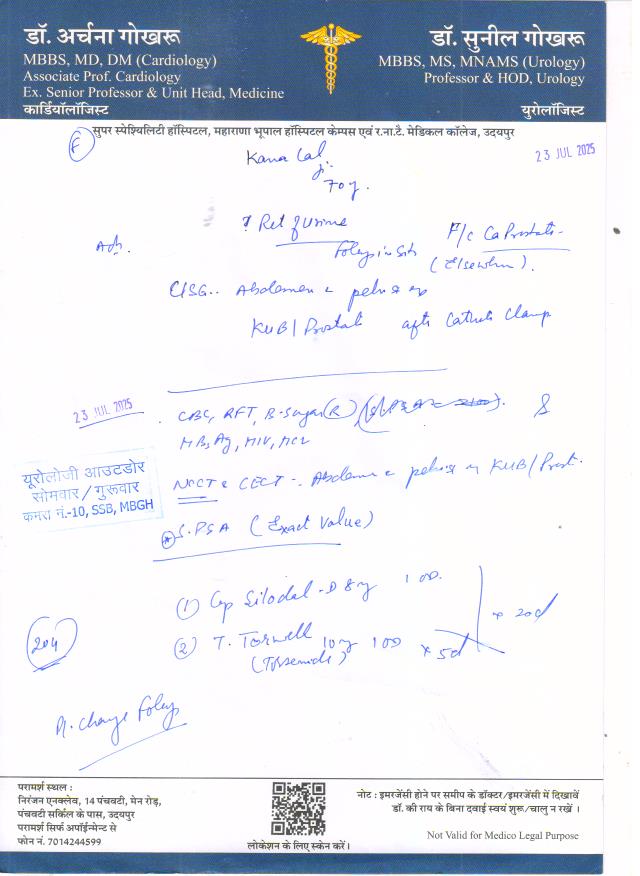 डॉ. अर्चना गोखरू
MBBS, MD, DM (Cardiology)
Associate Prof. Cardiology
Ex. Senior Professor & Unit Head, Medicine
कार्डियॉलॉजिस्ट
डॉ. सुनील गोखरू
MBBS, MS, MNAMS (Urology)
Professor & HOD, Urology
युरोलॉजिस्ट
सुपर स्पेश्यिलिटी हॉस्पिटल, महाराणा भूपाल हॉस्पिटल केम्पस एवं र.ना.टै. मेडिकल कॉलेज, उदयपुर
F
23 JUL 2025
Kana Lal
70y.
Ret of Urine
Foleys in Situ
F/c Ca Prostate
(Elsewhere).
Adv.
USG.. Abdomen & pelvis
KUB/Prostate after Catheter Clamp
23 JUL 2025
CBC, RFT, B-Sugar (R)
HBsAg, HIV, HCV
NCCT & CECT -. Abdomen & pelvis KUB/Prost.
S.PSA (Exact Value)
यूरोलोजी आउटडोर
सोमवार / गुरूवार
कमरा नं.-10, SSB, MBGH
(1) Cap Silodal-D 8mg 1 OD.
(2) T. Torwell 10mg 1 OD x 5d
x 20d
204
change Foleys
परामर्श स्थल :
निरंजन एनक्लेव, 14 पंचवटी, मेन रोड़,
पंचवटी सर्किल के पास, उदयपुर
परामर्श सिर्फ अपॉईन्मेन्ट से
फोन नं. 7014244599
लोकेशन के लिए स्केन करें।
नोट : इमरजेंसी होने पर समीप के डॉक्टर/इमरजेंसी में दिखावें
डॉ. की राय के बिना दवाई स्वयं शुरू/चालु न रखें ।
Not Valid for Medico Legal Purpose